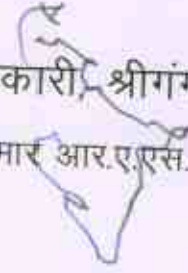 कारी, श्रीगं
मार आर.ए.एस.